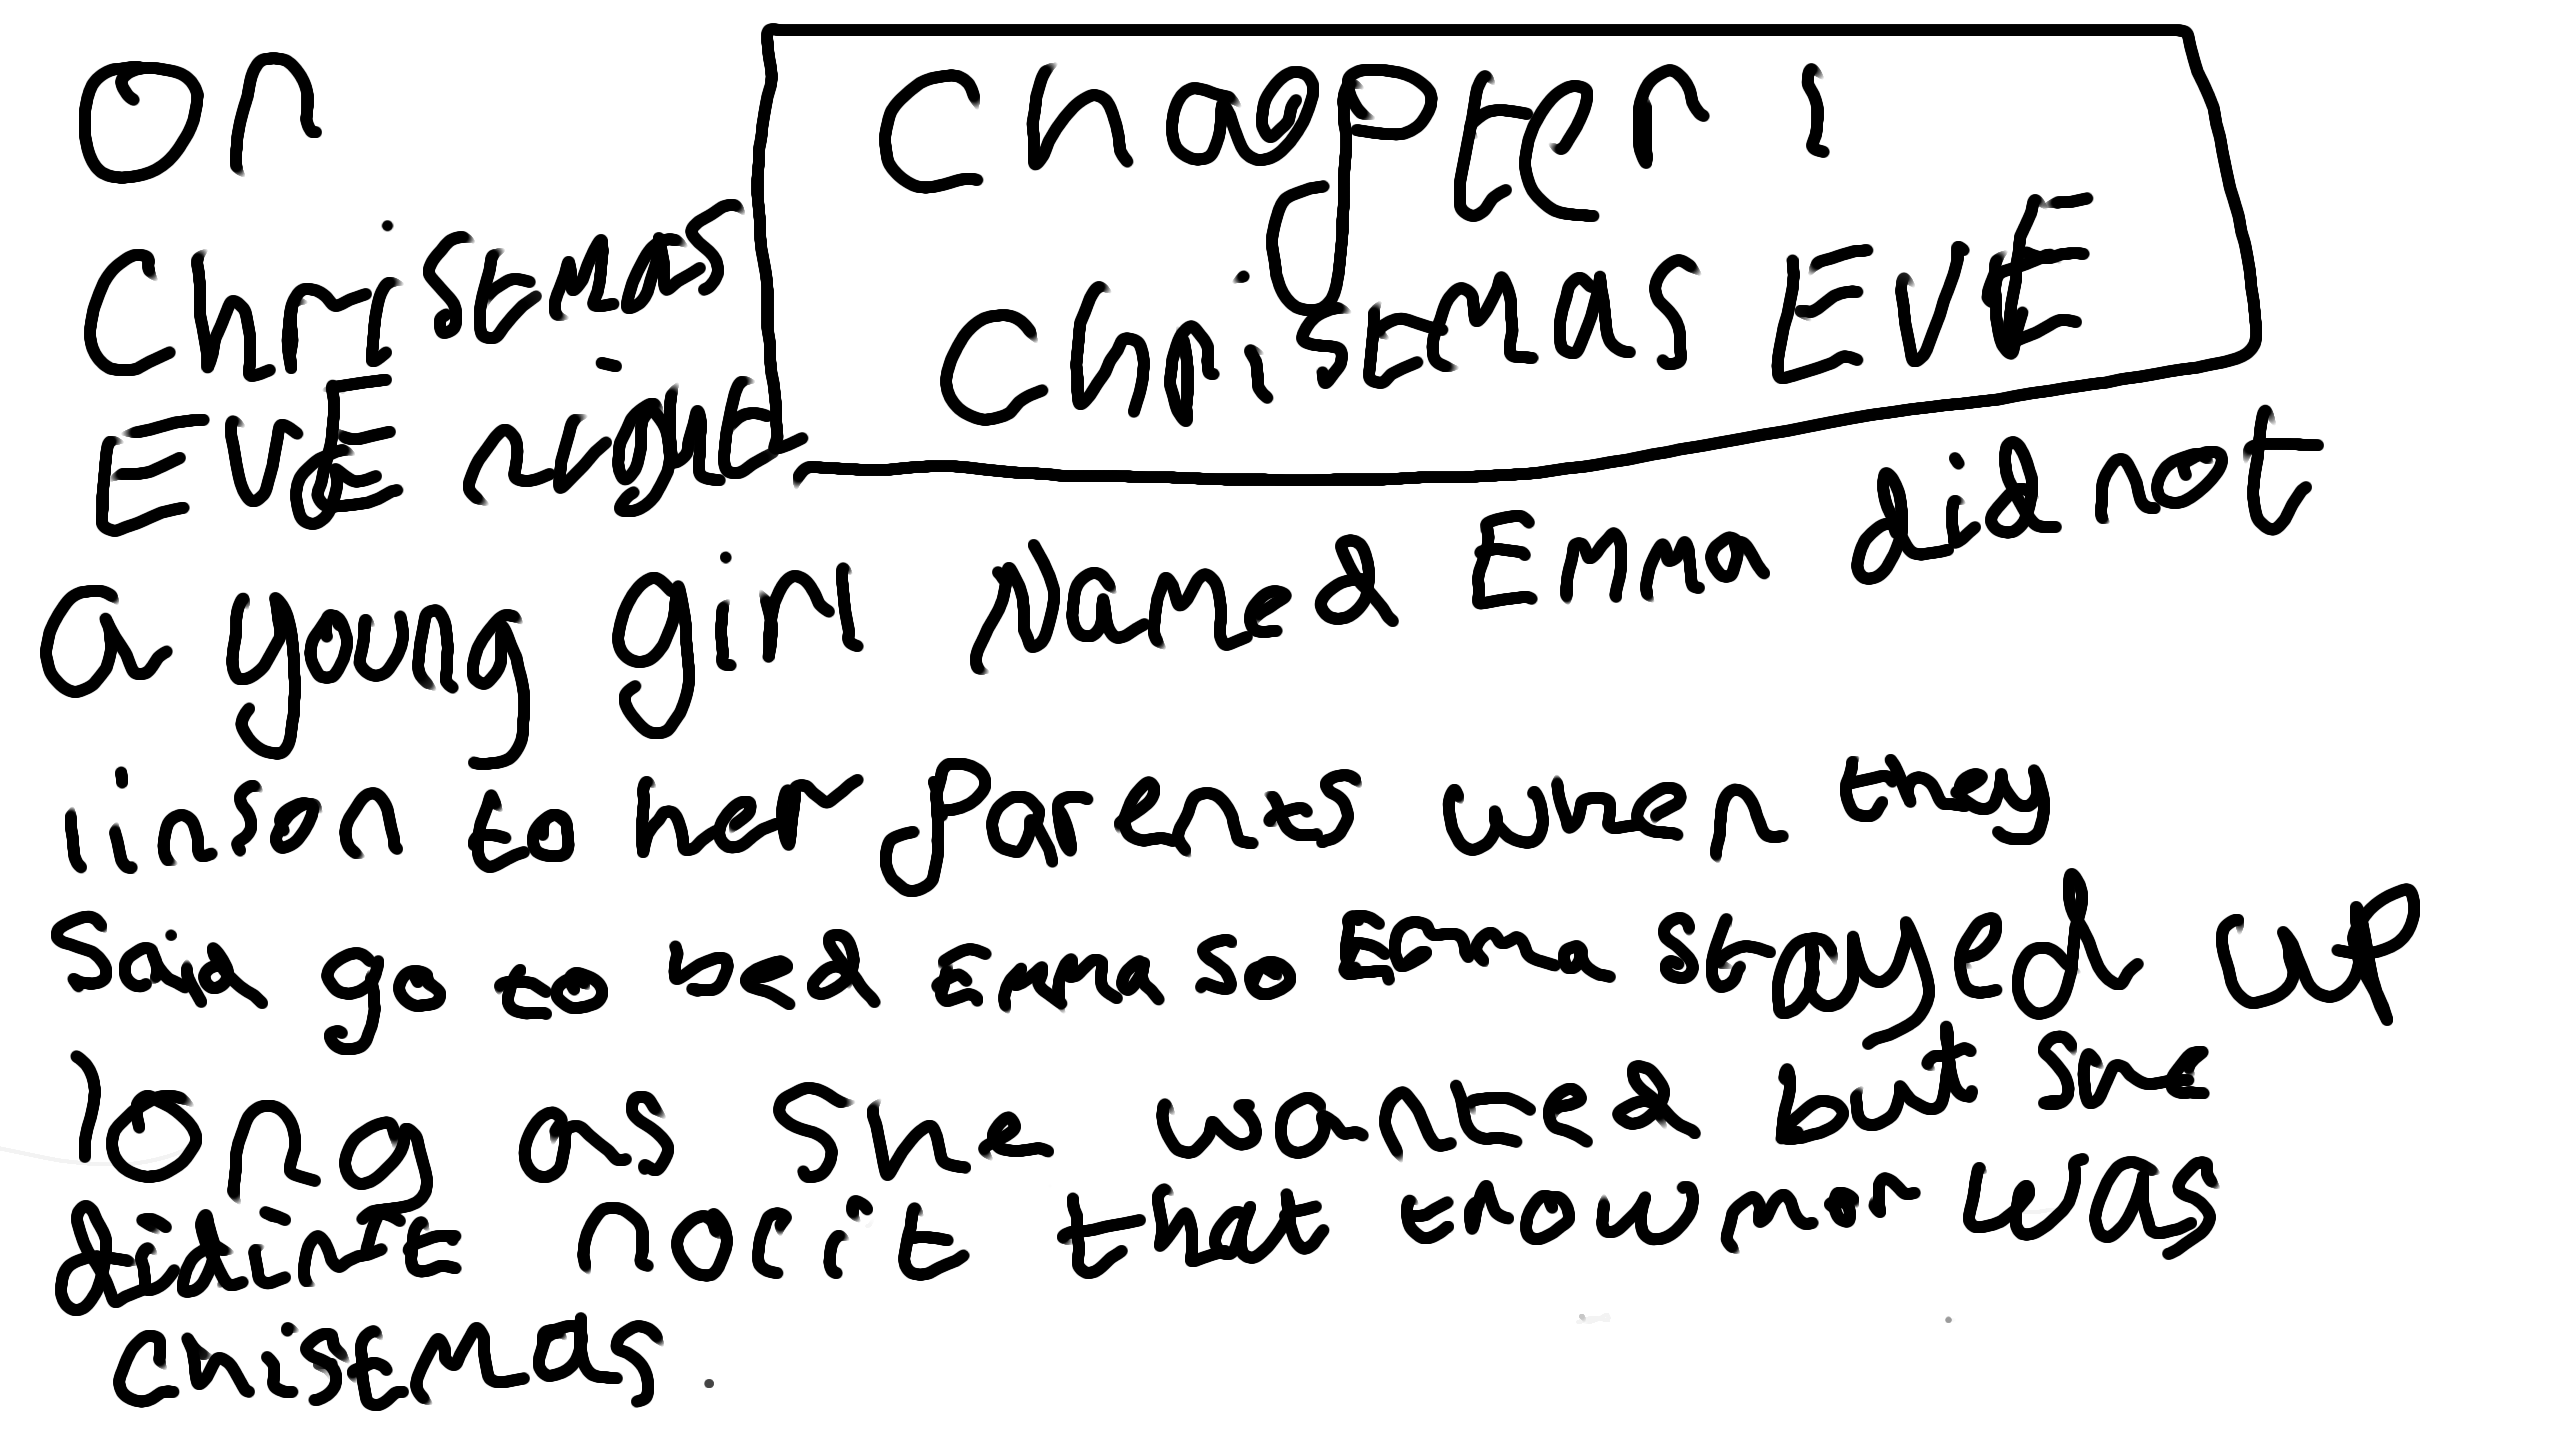 Chapter 1
Christmas EVE
on
Christmas
EVE night
a young girl Named Emma did not
linson to her parents when they
Said go to bed Emma so Emma stayed up
long as She wanted but she
didin't nocit that towmor was
Chistmas.